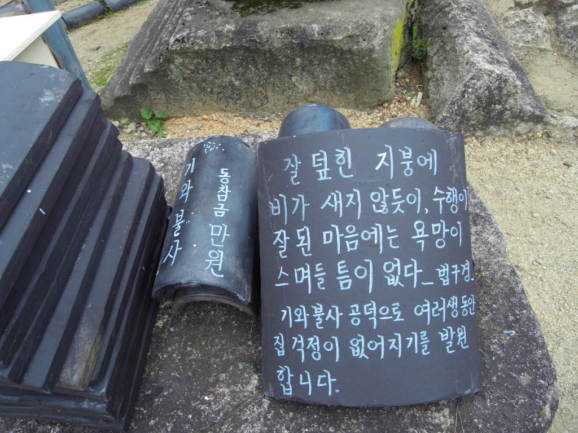 기와불사
동참금 만원
잘 덮힌 지붕에
비가 새지 않듯이, 수행이
잘 된 마음에는 욕망이
스며들 틈이 없다_법구경_
기와불사 공덕으로 여러생 동안
집 걱정이 없어지기를 발원
합니다.